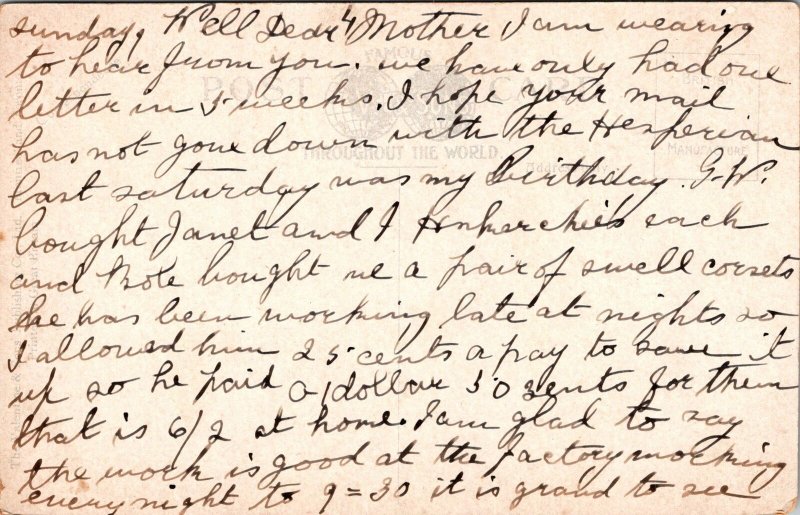 sunday, Well Dear Mother I am wearing
to hear from you. we have only had one
letter in 5 weeks. I hope your mail
has not gone down with the Hesperian
last saturday was my Birthday. G.W.
bought Janet and I Hnkerchies each
and bought me a pair of swell corsets
he has been working late at nights so
I allowed him 25 cents a pay to save it
up so he paid a dollar 50 sents for them
that is 6/2 at home. I am glad to say
the work is good at the factory working
every night to 9=30 it is grand to see
FAMOUS
POST CARD
THROUGHOUT THE WORLD.
MANUFACTURE